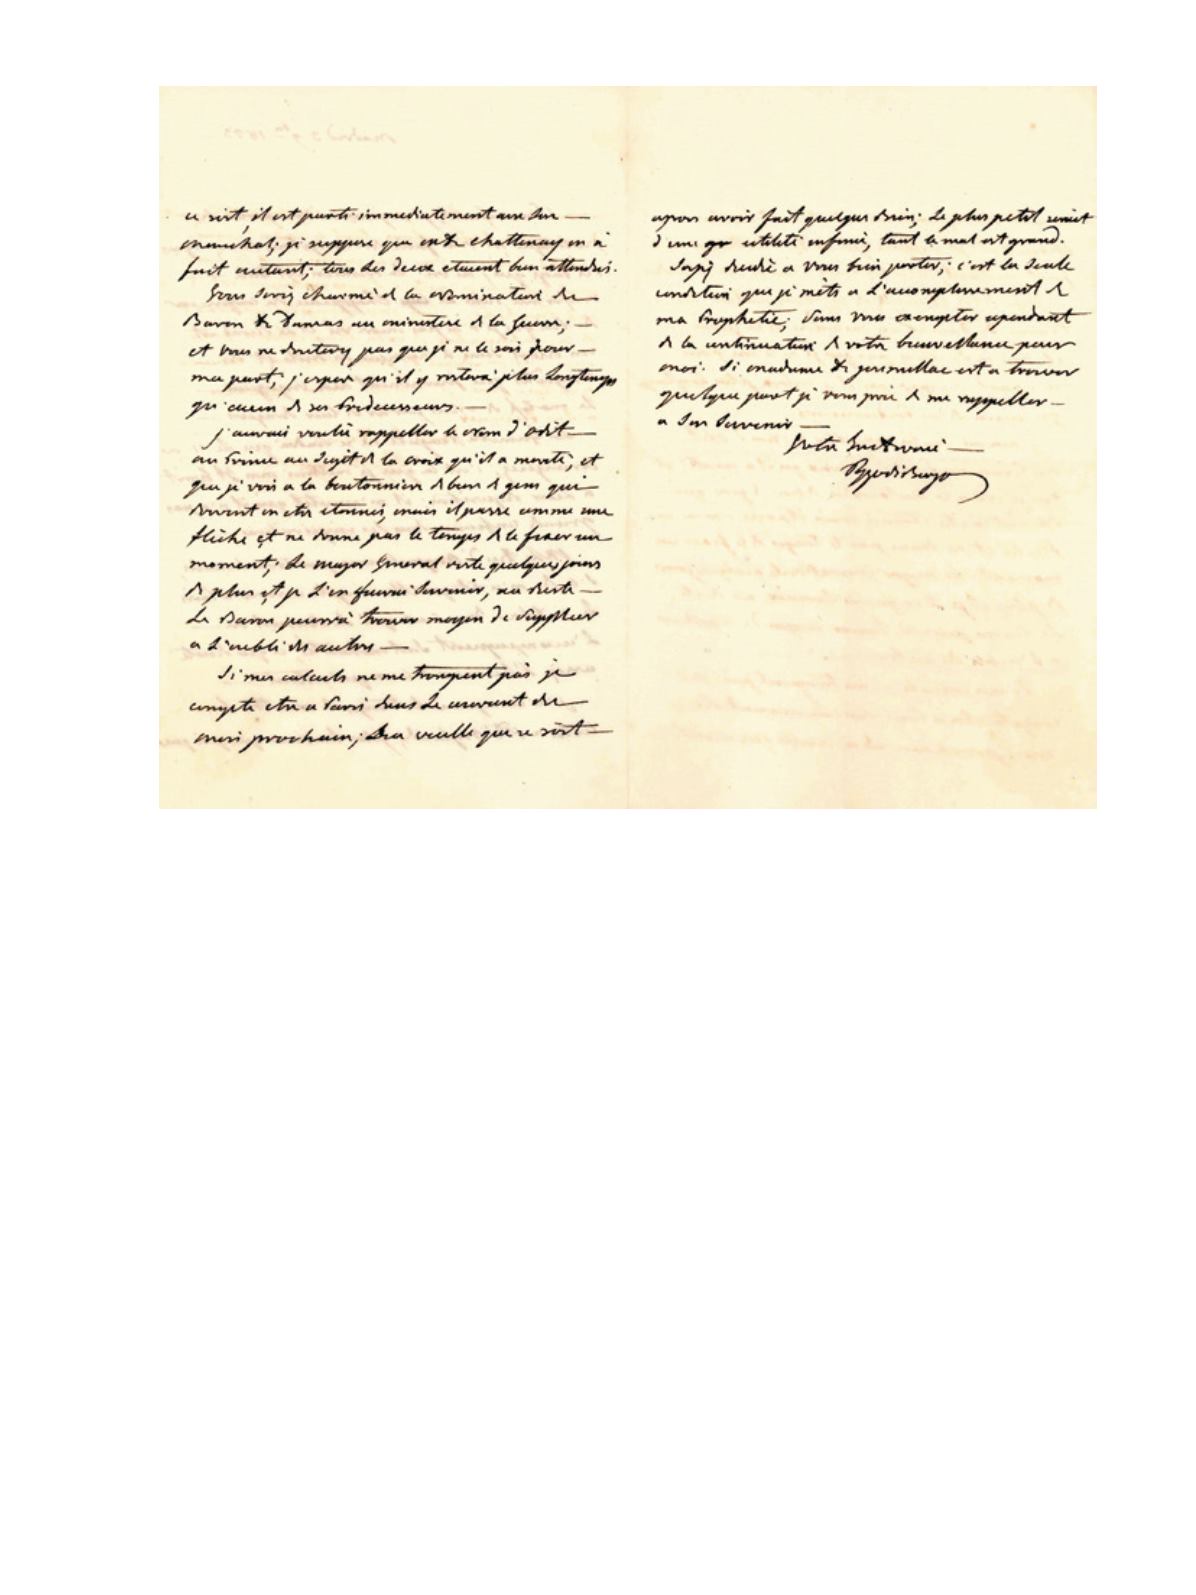 ce soir, il est parti immediatement avec son —
marechal; je suppose que Mr de Chattenay en à
fait autant; tous les deux etaient bien attendus.
Vous serez charmé de la nomination du
Baron de Damas au ministere de la Guerre; —
et vous ne douterez pas que je ne le sois pour —
ma part; j'espere qu'il y restera plus longtemps
qu'aucun de ses predecesseurs. —
j'aurai voulu rappeller le nom d'Odet —
au Prince au sujet de la croix qu'il a merité, et
que je vois a la boutonniere de bien de gens qui
doivent en etre etonnés, mais il passe comme une
flêche et ne donne pas le temps de le fixer un
moment; Le major General reste quelques jours
de plus et je l'en ferai souvenir, au reste —
Le Baron pourrà trouver moyen de suppleer
a l'oubli des autres —
Si mes calculs ne me trompent pas je
compte etre a Paris dans le courant du
mois prochain; Dieu veuille que ce soit —
apres avoir fait quelque bien; Le plus petit seroit
d'une utilité infinie, tant le mal est grand.
a vous bien porter; c'est la seule
condition que je mets a l'accomplissement de
ma Prophetie; sans vous exempter cependant
de la continuation de votre bienveillance pour
moi. Si madame de est a trouver
quelque part je vous prie de me rappeller —
a son souvenir —
Votre —
Pozzo di Borgo